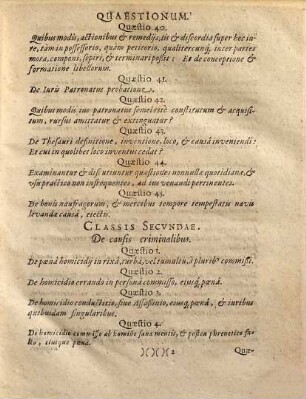 QUAESTIONUM.
Quæstio 40.
Quibus modis, actionibus & remedijs, lis & discordia super hoc iu-
re, tàm in possessorio, quàm petitorio, qualitercunq; inter partes
mota, componi, sopiri, & terminari possit: Et de conceptione &
formatione libellorum.
Quæstio 41.
De Iuris Patronatus probatione.
Quæstio 42.
Quibus modis ius patronatus semel ritè constitutum & acquisi-
tum, rursus amittatur & extinguatur?
Quæstio 43.
De Thesauri definitione, inventione, loco, & causâ inveniendi:
Et cui in quolibet loco inventus cedat?
Quæstio 44.
Examinantur & discutiuntur quæstiones nonnullæ quotidianæ, &
usu practico non infrequentes, ad ius venandi pertinentes.
Quæstio 45.
De bonis naufragorum, & mercibus tempore tempestatis navis
levandæ causâ, eiectis.
CLASSIS SECVNDAE.
De causis criminalibus.
Quæstio 1.
De pœnâ homicidij in rixâ, turbâ, vel tumultu, à pluribus commissi.
Quæstio 2.
De homicidio errando in personâ commisso, eiusq; pœnâ.
Quæstio 3.
De homicidio conductitio, sive Assasinio, eiusq; pœnâ, & iuribus
quibusdam singularibus.
Quæstio 4.
De homicidio commisso ab homine sanæ mentis, & postea phrenetico fa-
cto, eiusque pœna.
)( )( )( 2
Quæ-